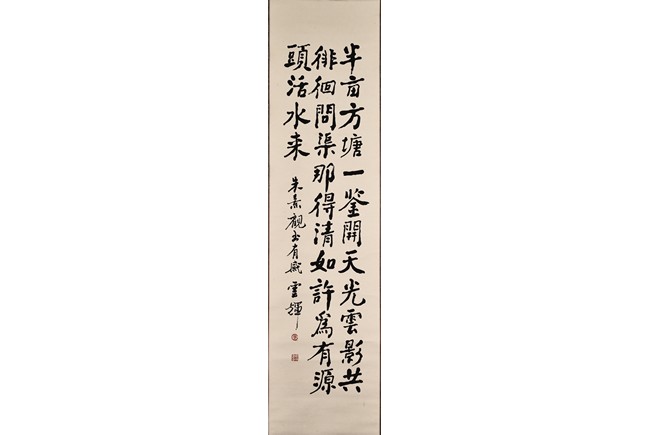 半亩方塘一鉴開天光雲影共
徘徊問渠那得清如許為有源
頭活水来
朱熹觀书有感 雲輝